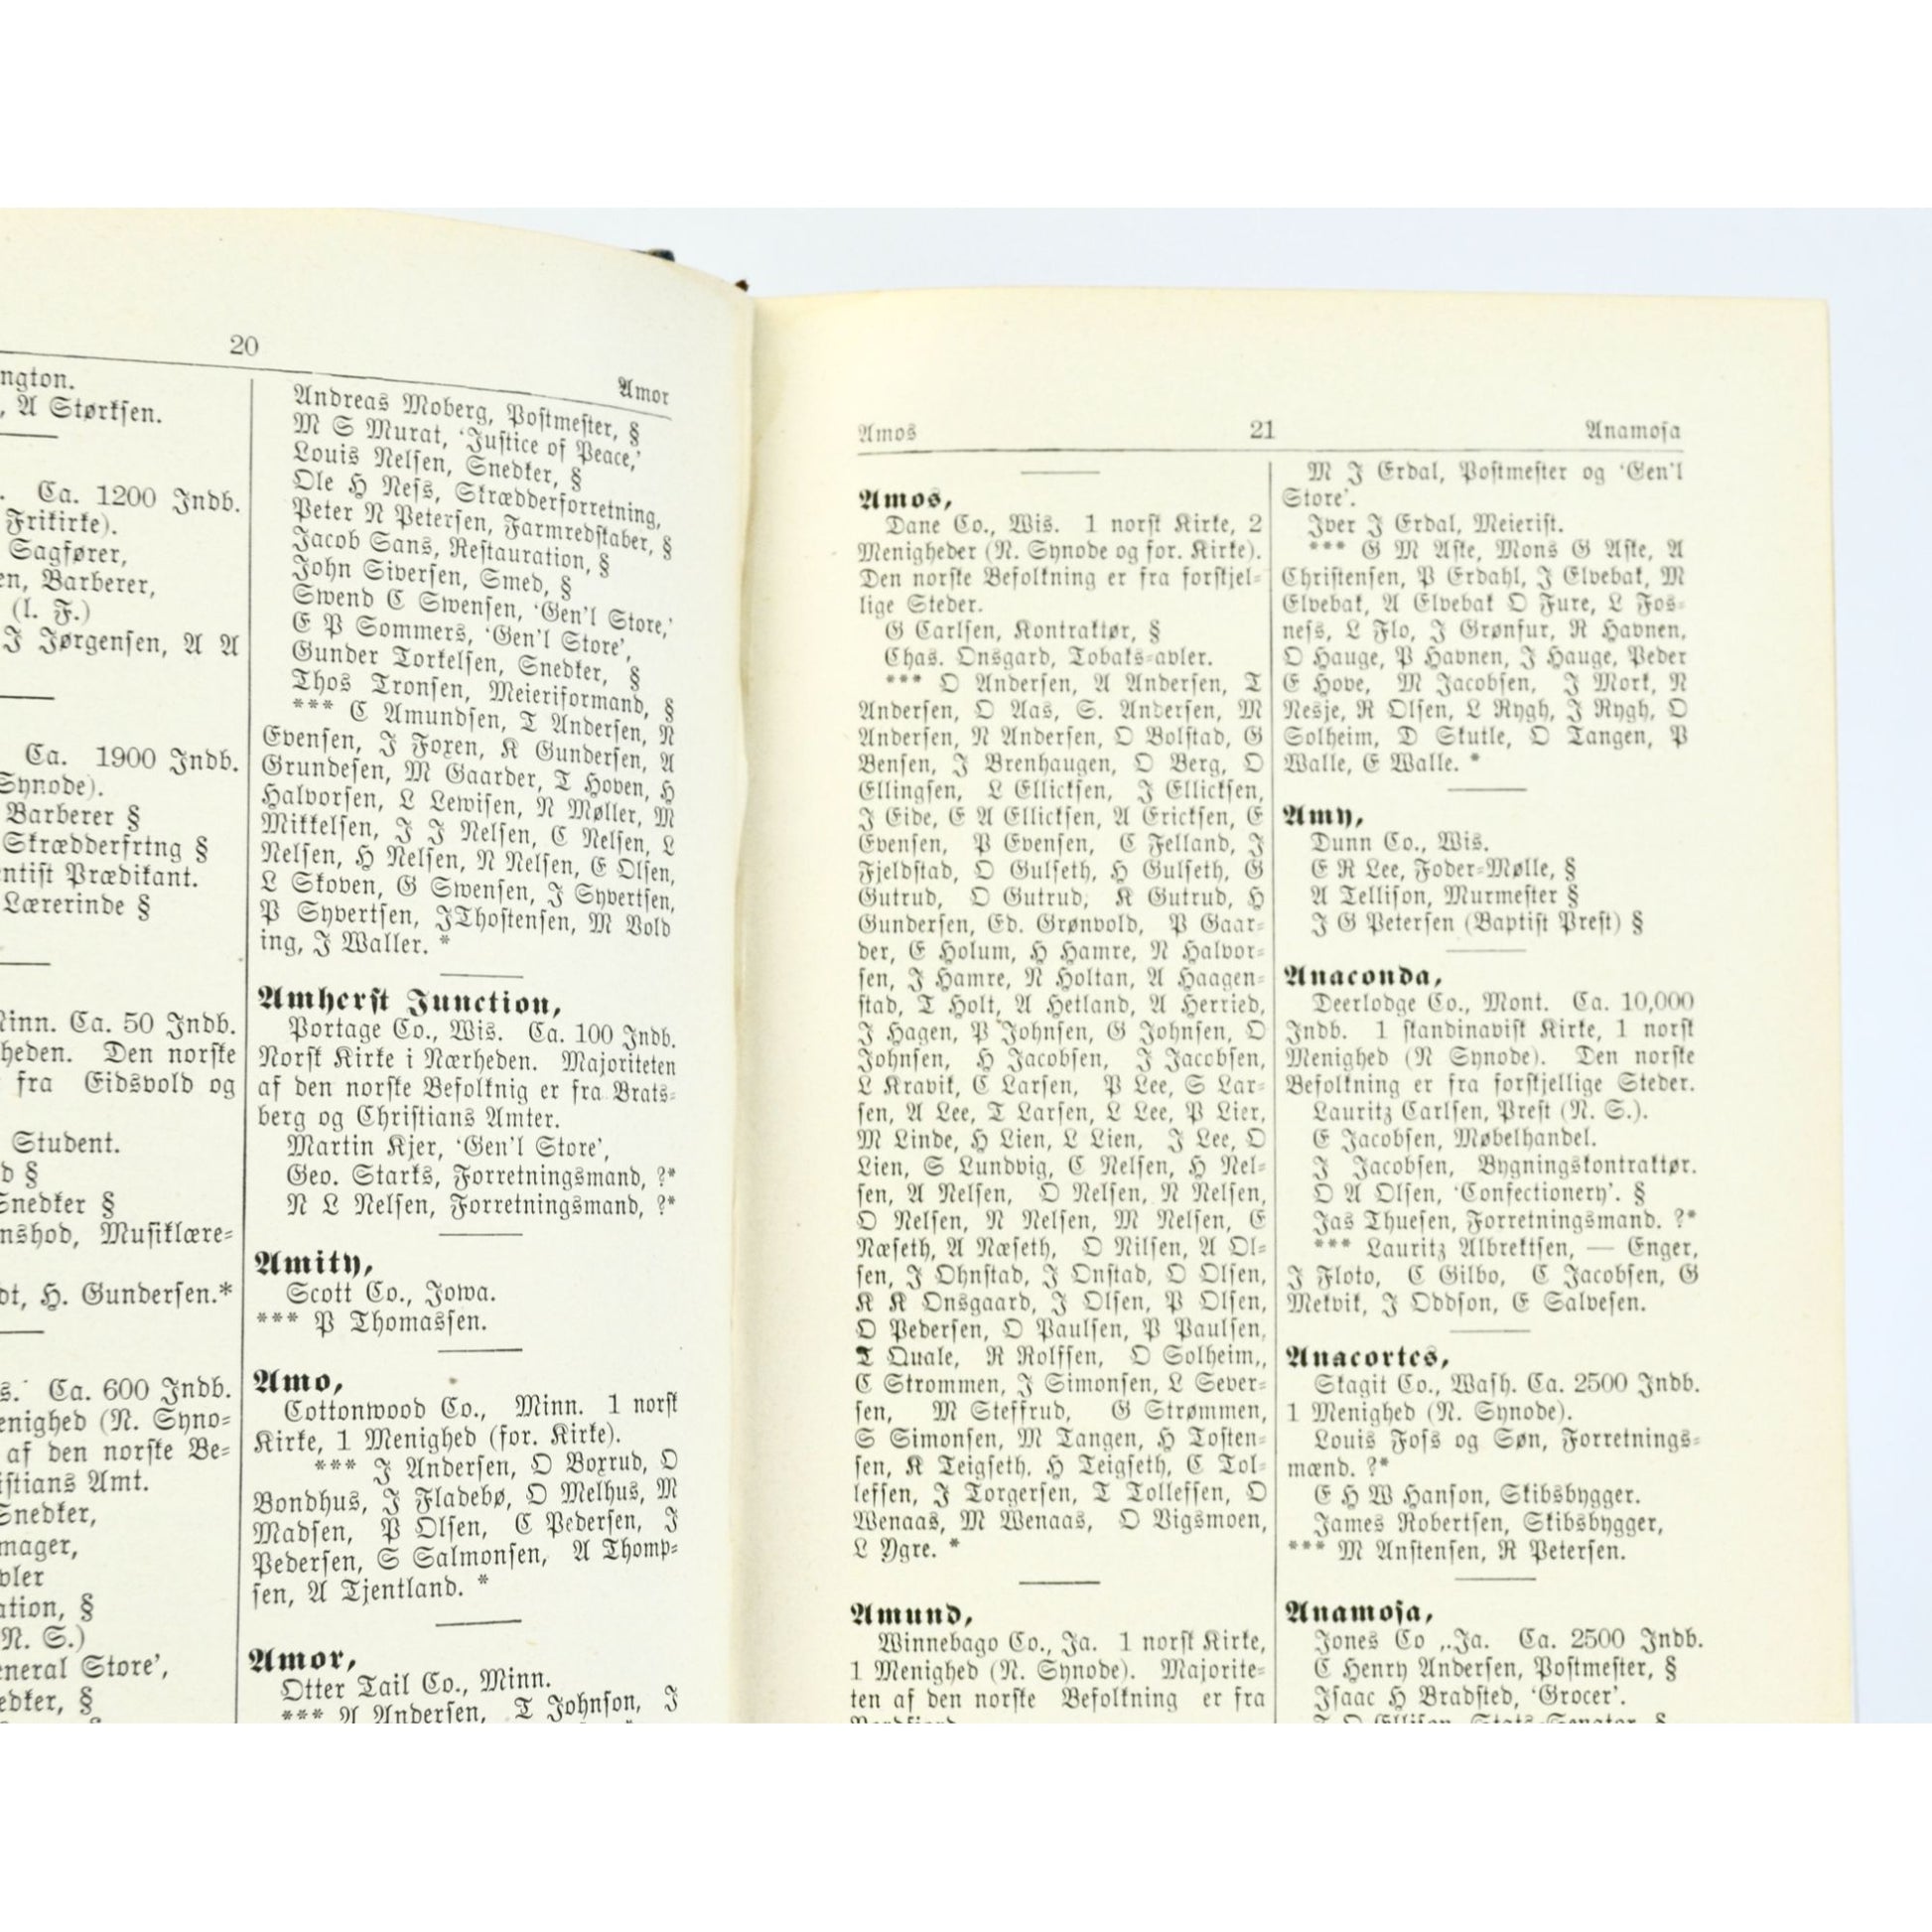 20
Amor
ngton.
, A Størksen.
. Ca. 1200 Indb.
Frikirke).
Sagfører,
en, Barberer,
(l. F.)
J Jørgensen, A A
Ca. 1900 Indb.
Synode).
Barberer §
Skrædderfrtng §
ntist Prædikant.
Lærerinde §
Minn. Ca. 50 Indb.
heden. Den norske
fra Eidsvold og
Student.
d §
Snedker §
nshod, Musiklære-
dt, H. Gundersen.*
s. Ca. 600 Indb.
enighed (N. Syno-
af den norske Be-
istians Amt.
Snedker,
mager,
vler
ation, §
N. S.)
eneral Store',
edker, §
Andreas Moberg, Postmester, §
M S Murat, 'Justice of Peace,'
Louis Nelsen, Snedker, §
Ole H Ness, Skrædderforretning,
Peter N Petersen, Farmredskaber, §
Jacob Sans, Restauration, §
John Siversen, Smed, §
Swend C Swensen, 'Gen'l Store,'
E P Sommers, 'Gen'l Store',
Gunder Torkelsen, Snedker, §
Thos Tronsen, Meieriformand, §
*** C Amundsen, T Andersen, N
Evensen, J Foxen, K Gundersen, A
Grundesen, M Gaarder, T Hoven, H
Halvorsen, L Lewisen, N Møller, M
Mikkelsen, J J Nelsen, C Nelsen, L
Nelsen, H Nelsen, N Nelsen, E Olsen,
L Skoven, G Swensen, J Syvertsen,
P Syvertsen, JThostensen, M Vold
ing, J Waller. *
Amherst Junction,
Portage Co., Wis. Ca. 100 Indb.
Norsk Kirke i Nærheden. Majoriteten
af den norske Befolknig er fra Brats-
berg og Christians Amter.
Martin Kjer, 'Gen'l Store',
Geo. Starks, Forretningsmand, ?*
N L Nelsen, Forretningsmand, ?*
Amity,
Scott Co., Jowa.
*** P Thomassen.
Amo,
Cottonwood Co., Minn. 1 norsk
Kirke, 1 Menighed (for. Kirke).
*** J Andersen, O Boxrud, O
Bondhus, J Fladebø, O Melhus, M
Madsen, P Olsen, C Pedersen, J
Pedersen, S Salmonsen, A Thomp-
sen, A Tjentland. *
Amor,
Otter Tail Co., Minn.
*** A Andersen, T Johnson, J
Amos 21 Anamosa
Amos,
Dane Co., Wis. 1 norsk Kirke, 2
Menigheder (N. Synode og for. Kirke).
Den norske Befolkning er fra forskjel-
lige Steder.
G Carlsen, Kontraktør, §
Chas. Onsgard, Tobaks-avler.
*** O Andersen, A Andersen, T
Andersen, O Aas, S. Andersen, M
Andersen, N Andersen, O Bolstad, G
Bensen, J Brenhaugen, O Berg, O
Ellingsen, L Ellicksen, J Ellicksen,
J Eide, E A Ellicksen, A Ericksen, E
Evensen, P Evensen, C Felland, J
Fjeldstad, O Gulseth, H Gulseth, G
Gutrud, O Gutrud, K Gutrud, H
Gundersen, Ed. Grønvold, P Gaar-
der, E Holum, H Hamre, N Halvor-
sen, J Hamre, N Holtan, A Haagen-
stad, T Holt, A Hetland, A Herried,
J Hagen, P Johnsen, G Johnsen, O
Johnsen, H Jacobsen, J Jacobsen,
L Kravik, C Larsen, P Lee, S Lar-
sen, A Lee, T Larsen, L Lee, P Lier,
M Linde, H Lien, L Lien, J Lee, O
Lien, S Lundvig, C Nelsen, H Nel-
sen, A Nelsen, O Nelsen, N Nelsen,
O Nelsen, N Nelsen, M Nelsen, E
Næseth, A Næseth, O Nilsen, A Ol-
sen, J Ohnstad, J Onstad, O Olsen,
K K Onsgaard, J Olsen, P Olsen,
O Pedersen, O Paulsen, P Paulsen,
T Quale, R Rolfsen, O Solheim,,
C Strommen, J Simonsen, L Sever-
sen, M Steffrud, G Strømmen,
S Simonsen, M Tangen, H Tosten-
sen, K Teigseth. H Teigseth, C Tol-
lefsen, J Torgersen, T Tollefsen, O
Wenaas, M Wenaas, O Vigsmoen,
L Ygre. *
Amund,
Winnebago Co., Ja. 1 norsk Kirke,
1 Menighed (N. Synode). Majorite-
ten af den norske Befolkning er fra
M J Erdal, Postmester og 'Gen'l
Store'.
Iver J Erdal, Meierist.
*** G M Aske, Mons G Aske, A
Christensen, P Erdahl, J Elvebak, M
Elvebak, A Elvebak O Fure, L Fos-
ness, L Flo, J Grønfur, R Havnen,
O Hauge, P Havnen, J Hauge, Peder
E Hove, M Jacobsen, J Mork, N
Nesje, R Olsen, L Rygh, J Rygh, O
Solheim, D Skutle, O Tangen, P
Walle, E Walle. *
Amy,
Dunn Co., Wis.
E R Lee, Foder-Mølle, §
A Tellison, Murmester §
J G Petersen (Baptist Prest) §
Anaconda,
Deerlodge Co., Mont. Ca. 10,000
Indb. 1 skandinavisk Kirke, 1 norsk
Menighed (N Synode). Den norske
Befolkning er fra forskjellige Steder.
Lauritz Carlsen, Prest (N. S.).
E Jacobsen, Møbelhandel.
J Jacobsen, Bygningskontraktør.
O A Olsen, 'Confectionery'. §
Jas Thuesen, Forretningsmand. ?*
*** Lauritz Albrektsen, — Enger,
J Floto, C Gilbo, C Jacobsen, G
Mekvik, J Oddson, E Salvesen.
Anacortes,
Skagit Co., Wash. Ca. 2500 Indb.
1 Menighed (N. Synode).
Louis Foss og Søn, Forretnings-
mænd. ?*
E H W Hanson, Skibsbygger.
James Robertsen, Skibsbygger,
*** M Anstensen, R Petersen.
Anamosa,
Jones Co ,.Ja. Ca. 2500 Indb.
C Henry Andersen, Postmester, §
Isaac H Bradsted, 'Grocer'.